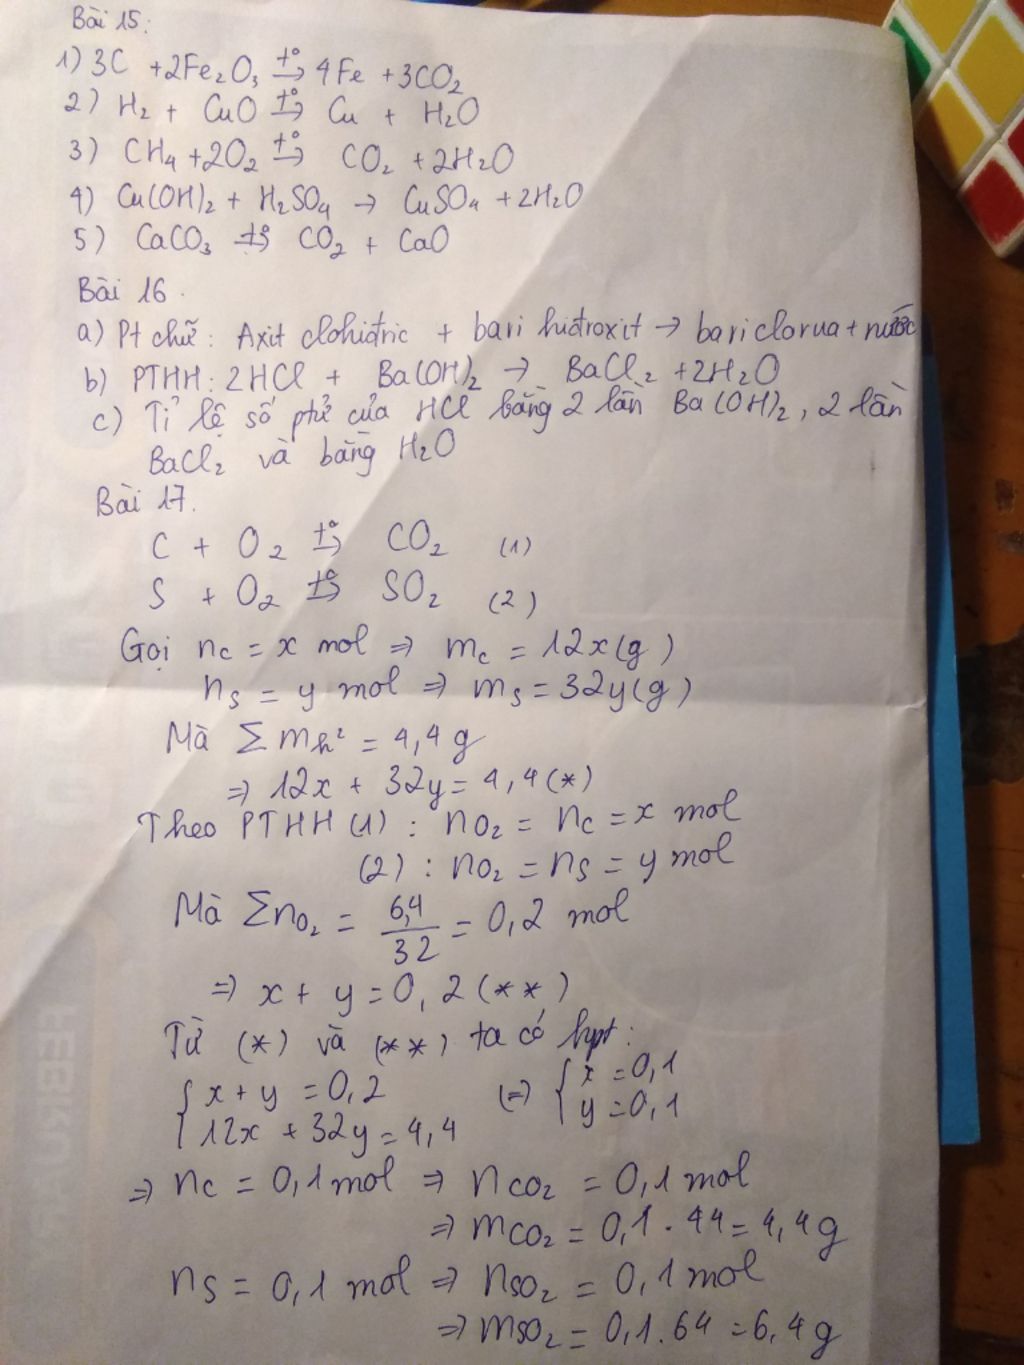 Bài 15:
1) 3C + 2Fe₂O₃ t°→ 4Fe + 3CO₂
2) H₂ + CuO t°→ Cu + H₂O
3) CH₄ + 2O₂ t°→ CO₂ + 2H₂O
4) Cu(OH)₂ + H₂SO₄ → CuSO₄ + 2H₂O
5) CaCO₃ t°→ CO₂ + CaO
Bài 16.
a) Pt chữ: Axit clohiđric + bari hiđroxit → bari clorua + nước
b) PTHH: 2HCl + Ba(OH)₂ → BaCl₂ + 2H₂O
c) Tỉ lệ số ptử của HCl bằng 2 lần Ba(OH)₂, 2 lần
BaCl₂ và bằng H₂O
Bài 17.
C + O₂ t°→ CO₂ (1)
S + O₂ t°→ SO₂ (2)
Gọi nc = x mol ⇒ mc = 12x(g)
ns = y mol ⇒ ms = 32y(g)
Mà Σmh² = 4,4g
⇒ 12x + 32y = 4,4(*)
Theo PTHH (1): nO₂ = nc = x mol
(2): nO₂ = ns = y mol
Mà ΣnO₂ = 6,4/32 = 0,2 mol
⇒ x + y = 0,2(**)
Từ (*) và (**) ta có hpt:
{ x + y = 0,2 (⇒) { x = 0,1
12x + 32y = 4,4 y = 0,1
⇒ nc = 0,1 mol ⇒ nCO₂ = 0,1 mol
⇒ mCO₂ = 0,1 . 44 = 4,4g
ns = 0,1 mol ⇒ nSO₂ = 0,1 mol
⇒ mSO₂ = 0,1.64 = 6,4g